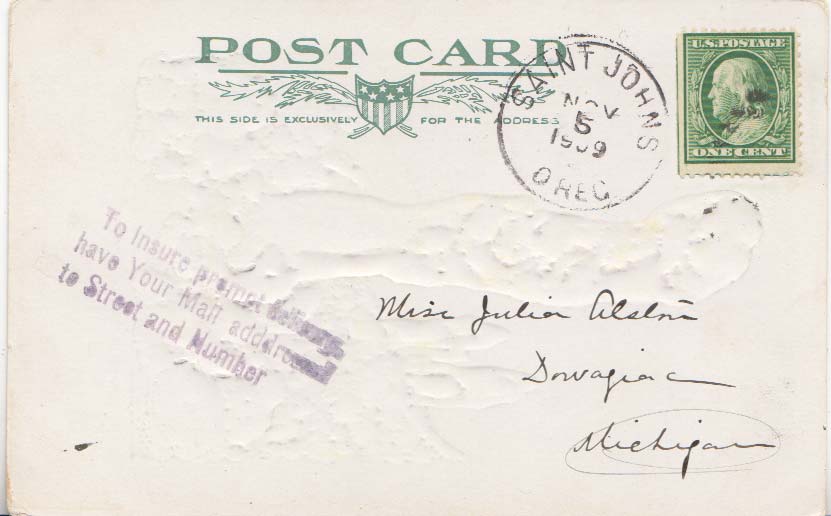 POST CARD
THIS SIDE IS EXCLUSIVELY FOR THE ADDRESS
SAINT JOHNS
NOV
5
1909
OREG.
U.S. POSTAGE
ONE CENT
To Insure prompt delivery
have Your Mail adddressed
to Street and Number
Miss Julia Alston
Dowagiac
Michigan